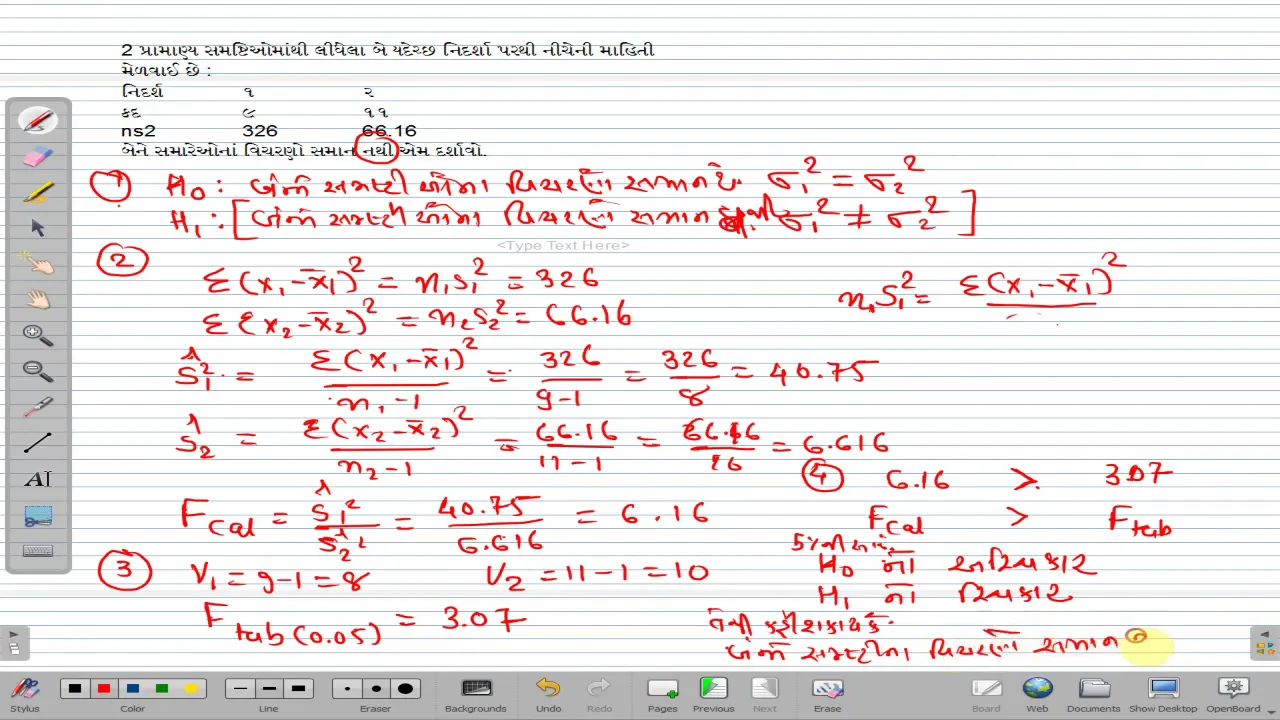 2 પ્રામાણ્ય સમષ્ટિઓમાંથી લીધેલા બે યદેચ્છ નિદર્શા પરથી નીચેની માહિતી
મેળવાઈ છે :
નિદર્શ ૧ ૨
કદ ૯ ૧૧
ns2 326 66.16
બેને સમારેઓનાં વિચરણો સમાન નથી એમ દર્શાવો.
1 H₀ : બંને સમષ્ટીઓના વિચરણો સમાન છે σ₁² = σ₂²
H₁ : [બંને સમષ્ટીઓના વિચરણો સમાન નથી σ₁² ≠ σ₂²]
<Type Text Here>
2
Σ(x₁-x̄₁)² = n₁s₁² = 326
n₁S₁² = Σ(x₁-x̄₁)²
Σ(x₂-x̄₂)² = n₂s₂² = 66.16
Ŝ₁² = Σ(x₁-x̄₁)² / n₁-1 = 326 / 9-1 = 326 / 8 = 40.75
Ŝ₂ = Σ(x₂-x̄₂)² / n₂-1 = 66.16 / 11-1 = 66.16 / 10 = 6.616
4 6.16 > 3.07
F cal = Ŝ₁² / Ŝ₂² = 40.75 / 6.616 = 6.16
F cal > F tab
5% ની
3 V₁ = 9-1 = 8 V₂ = 11-1 = 10
H₀ નો અસ્વિકાર
H₁ નો સ્વિકાર
F tab (0.05) = 3.07
તેથી કહી શકાય કે
બંને સમષ્ટીના વિચરણો સમાન
Stylus Color Line Eraser Backgrounds Undo Redo Pages Previous Next Erase Board Web Documents Show Desktop OpenBoard